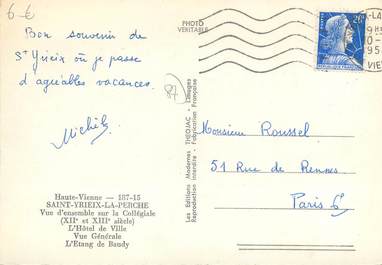 6 €
Bon souvenir de
St Yrieix où je passe
d'agréables vacances.
87
Michèle
Haute-Vienne — 187-15
SAINT-YRIEIX-LA-PERCHE
Vue d'ensemble sur la Collégiale
(XIIe et XIIIe siècle)
L'Hôtel de Ville
Vue Générale
L'Etang de Baudy
PHOTO
VERITABLE
Les Editions Modernes THEOJAC - Limoges
Reproduction Interdite - Fabrication Française
20F
Monsieur Roussel
51 Rue de Rennes
Paris 6